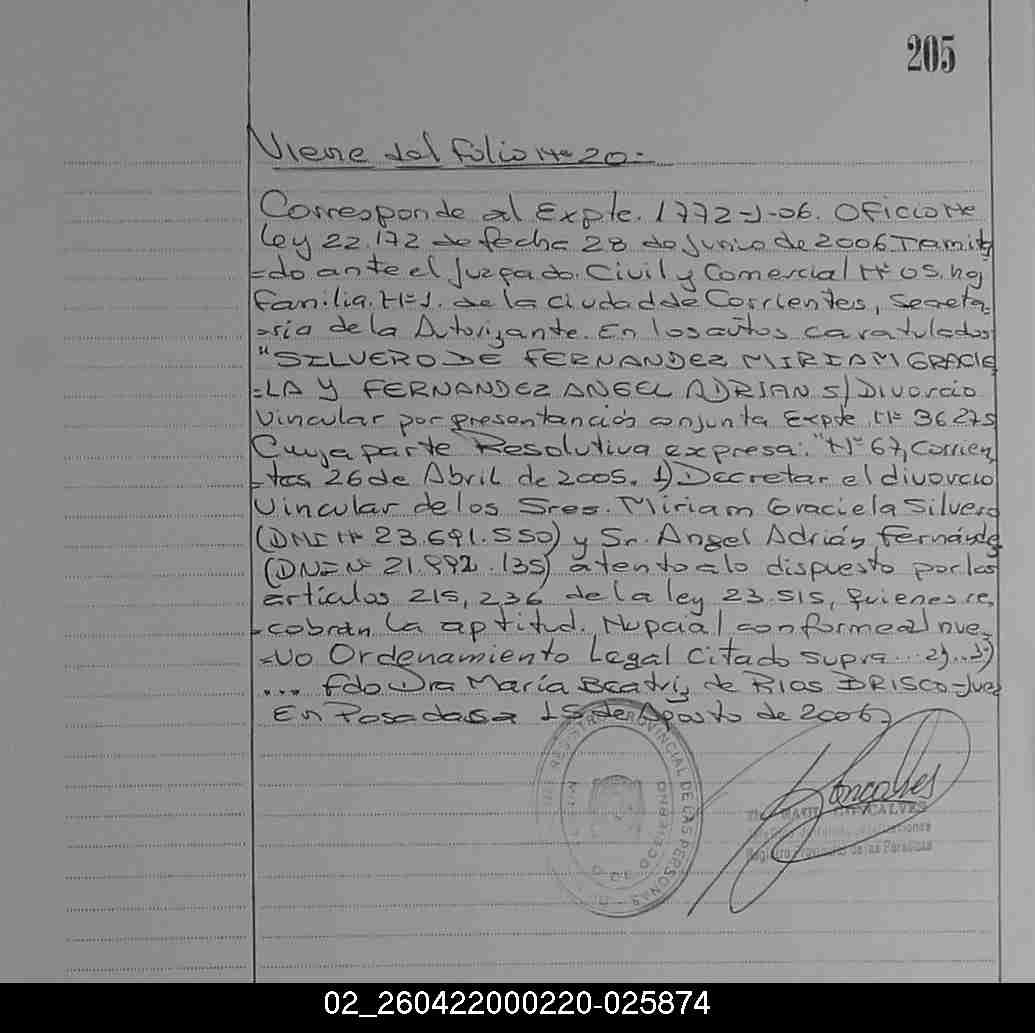 205
Viene del folio Nº 20=
Corresponde al Expte. 1772-J-06. Oficio Nº
Ley 22.172 de fecha 28 de Junio de 2006 Tramita
=do ante el Juzgado. Civil y Comercial Nº 05. hoy
Familia. Nº 1. de la ciudad de Corrientes, Secreta=
=ria de la Autorizante. En los autos caratulados
"SILVERO DE FERNANDEZ MIRIAM GRACIE
=LA Y FERNANDEZ ANGEL ADRIAN S/ Divorcio
Vincular por presentanción conjunta Expte. Nº 36275
Cuya parte Resolutiva expresa: "Nº 67, Corrien
=tes 26 de Abril de 2005. 1) Decretar el divorcio
Vincular de los Sres. Miriam Graciela Silvero
(DNI Nº 23.691.550) y Sr. Angel Adrián Fernández
(DNI Nº 21.992.135) atento a lo dispuesto por los
artículos 215, 236 de la ley 23.515, quienes re
=cobran la aptitud. Nupcial conforme al nue=
=vo Ordenamiento Legal Citado supra... 2)...3)
... fdo Dra María Beatriz de Rias DRISCO-Juez
En Posadas a 15 de Agosto de 2006
REGISTRO PROVINCIAL DE LAS PERSONAS
Goncalves
GONCALVES
Registro Provincial de las Personas
02_260422000220-025874